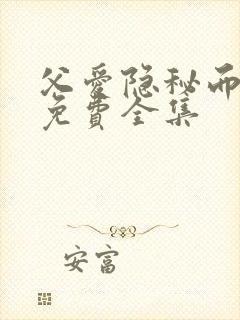 父愛隐秘而
免費全集
安富